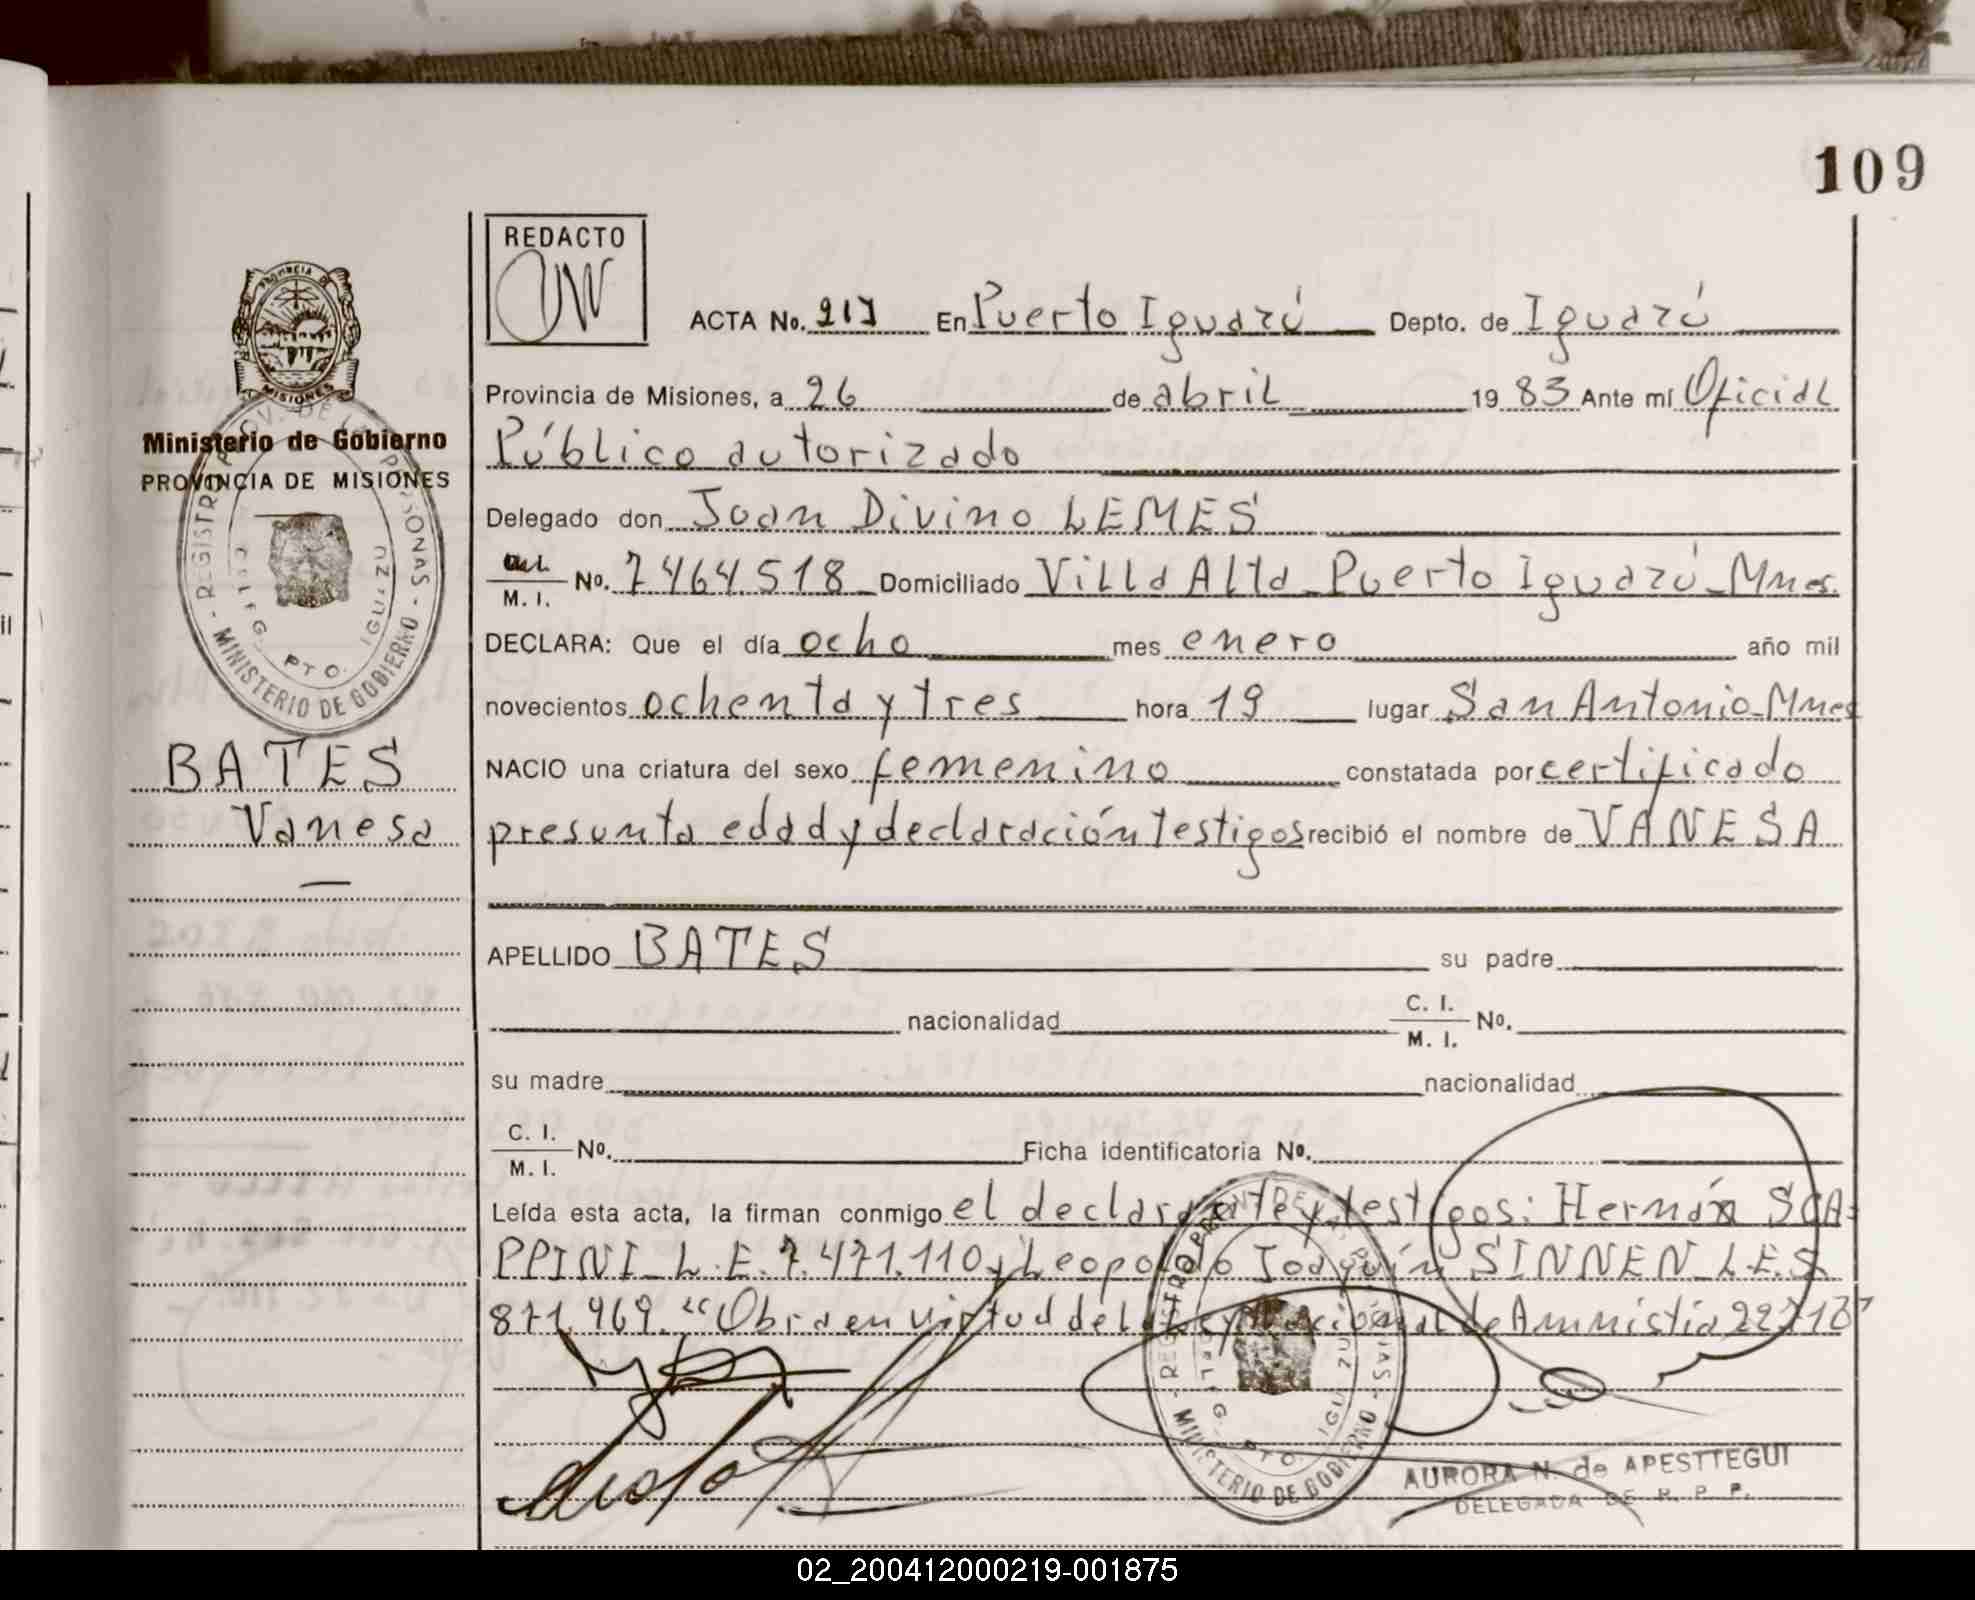 109
REDACTO
ACTA No. 217 En Puerto Iguazú Depto. de Iguazú
Provincia de Misiones, a 26 de abril 19 83 Ante mí Oficial
Público autorizado
Delegado don Joan Divino LEMES
M. I. No. 7464.518 Domiciliado Villa Alta - Puerto Iguazú - Mnes.
DECLARA: Que el día ocho mes enero año mil
novecientos ochenta y tres hora 19 lugar San Antonio - Mnes
NACIO una criatura del sexo femenino constatada por certificado
presunta edad y declaración testigos recibió el nombre de VANESA
APELLIDO BATES su padre
nacionalidad C. I. M. I. No.
su madre nacionalidad
C. I. M. I. No. Ficha identificatoria No.
Leída esta acta, la firman conmigo el declarante y testigos: Hernán SCA=
PPINI - L.E. 7.471.110 y Leopoldo Joaquín SINNEN - L.E. 5
871.969. "Obra en virtud de la Ley Nacional de Amnistia 22718"
AURORA N. de APESTTEGUI
DELEGADA DE R. P. P.
PROVINCIA DE
MISIONES
Ministerio de Gobierno
PROVINCIA DE MISIONES
REGISTRO PROV. DE LAS PERSONAS - MINISTERIO DE GOBIERNO -
DELEG. PTO. IGUAZU
BATES
Vanesa
REGISTRO PROV. DE LAS PERSONAS - MINISTERIO DE GOBIERNO -
DELEG. PTO. IGUAZU
02_200412000219-001875